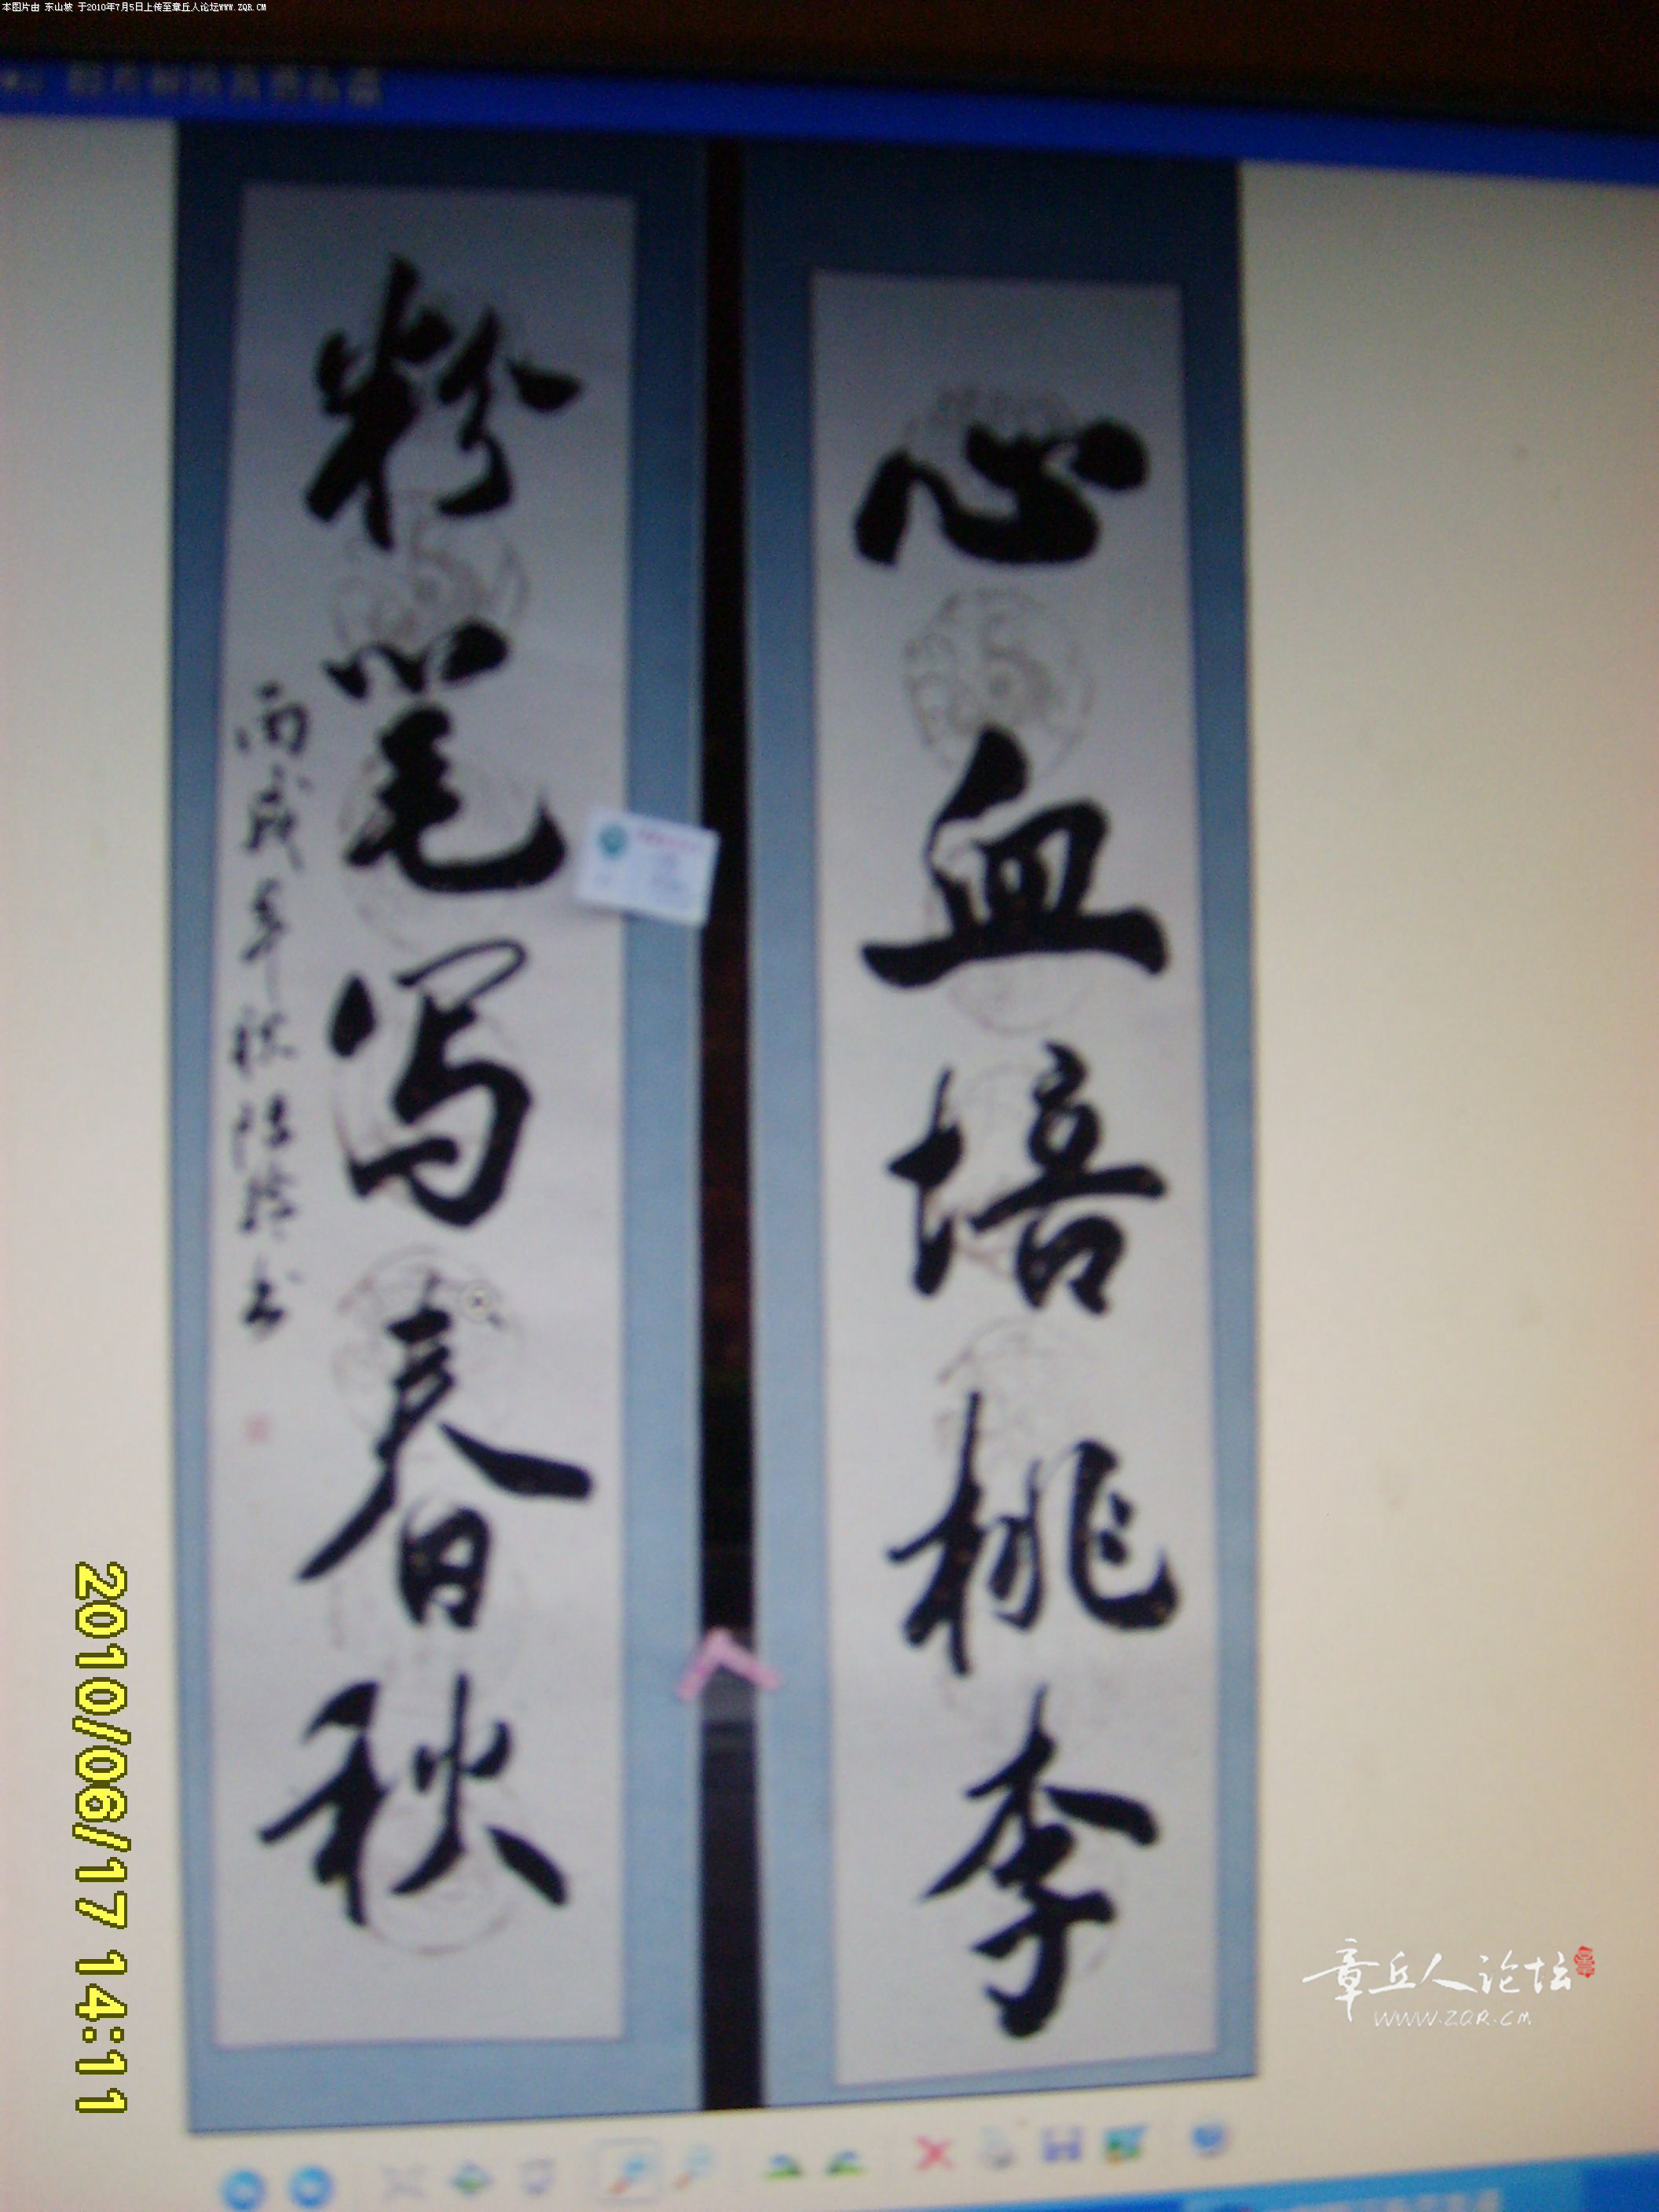 本图片由 东山坡 于2010年7月5日上传至章丘人论坛WWW.ZQR.CM
心血培桃李
粉笔写春秋
丙戌年秋
书
2010/06/17 14:11
章丘人论坛
WWW.ZQR.CM